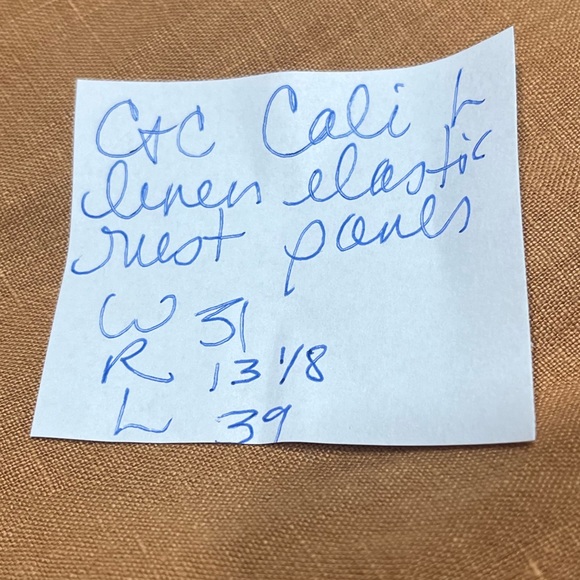 C+C Cali L
linen elastic
rust pants
W 31
R 13 1/8
L 39